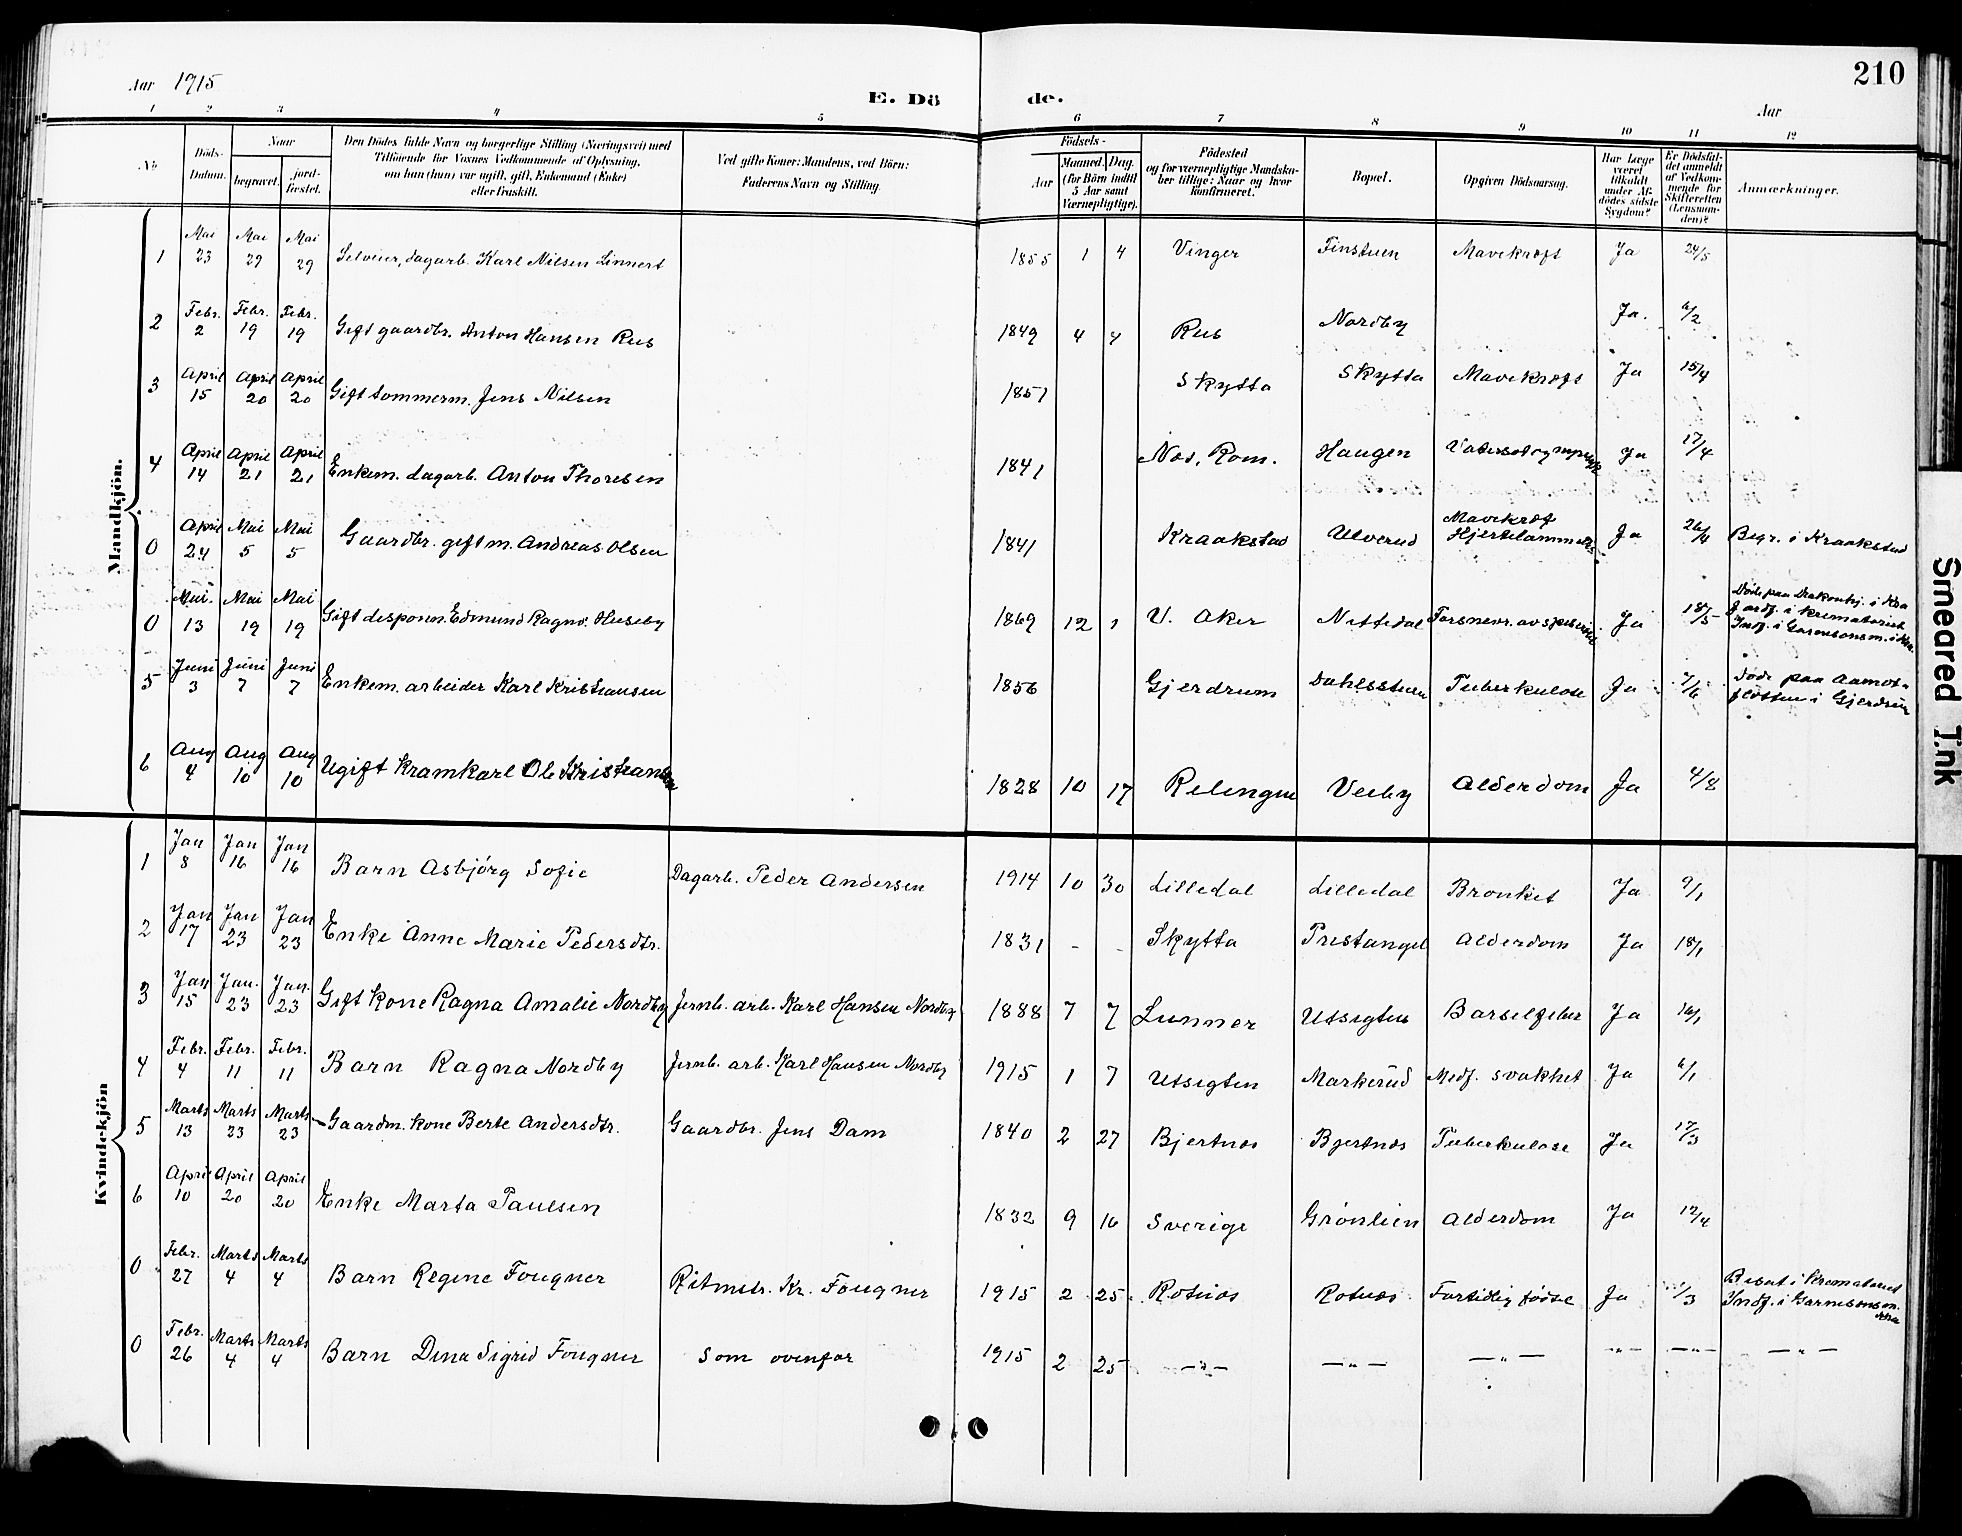 210
Aar 1915
E. Dö de.
Aar
1 2 3 4 5 6 7 8 9 10 11 12
No
Döds-Datum.
Naar
begravet.
jord-festet.
Den Dödes fulde Navn og borgerlige Stilling (Næringsvei) med
Tilföiende for Voxnes Vedkommende af Oplysning,
om han (hun) var ugift, gift, Enkemand (Enke)
eller fraskilt.
Ved gifte Koner: Mandens, ved Börn:
Faderens Navn og Stilling.
Födsels-
Aar
Maaned. Dag.
(for Börn indtil
5 Aar samt
Værnepligtige).
Födested
og for værnepligtige Mandska-
ber tillige: Naar og hvor
konfirmeret.
Bopæl.
Opgiven Dödsaarsag.
Har Læge
været
tilkaldt
under Af-
dödes sidste
Sygdom?
Er Dödsfal-
det anmeldt
af Vedkom-
mende for
Skifteretten
(Lensman-
den)?
Anmærkninger.
Mandkjön.
1 Mai 23 Mai 29 Mai 29 Selveier, dagarb. Karl Nilsen Linnert 1855 1 4 Vinger Finstuen Mavekræft Ja 24/5
2 Febr. 2 Febr. 19 Febr. 19 Gift gaardbr. Anton Hansen Rus 1849 4 4 Rus Nordby Ja. 6/2
3 April 15 April 20 April 20 Gift tommerm. Jens Nilsen 1851 Skytta Skytta Mavekræft Ja 15/4
4 April 14 April 21 April 21 Enkem. dagarb. Anton Thoresen 1841 Nos. Rom. Haugen Ja 17/4
0 April 24 Mai 5 Mai 5 Gaardbr. gift m. Andreas Olsen 1841 Kraakstad Ulverud Mavekræf Ja 26/4 Begr. i Kraakstad
0 Mai. 13 Mai 19 Mai 19 Gift disponn. Edmund Ragnv. Huseby 1869 12 1 V. Aker Nittedal Forsnevr. av spiserør Ja 18/5 Døde paa Diakonhj. i Kra
Jordf. i krematoriet
Indf. i Garnisonsm. i Kra.
5 Juni 3 Juni 7 Juni 7 Enkem. arbeider Karl Kristiansen 1856 Gjerdrum Dahlsstuen Tuberkulose Ja 7/6 Døde paa Aamot-
flötten i Gjerdrum
6 Aug 4 Aug 10 Aug 10 Ugift kramkarl Ole Kristiansen 1828 10 17 Relingen Veeby Alderdom Ja 4/8
Kvindekjön
1 Jan 8 Jan 16 Jan 16 Barn Asbjörg Sofie Dagarb. Peder Andersen 1914 10 30 Lilledal Lilledal Bronkit Ja 9/1
2 Jan 17 Jan 23 Jan 23 Enke Anne Marie Pedersdtr. 1831 - - Skytta Prestangel Alderdom Ja 18/1
3 Jan 15 Jan. 23 Jan. 23 Gift kone Ragna Amalie Nordby Jernb. arb. Karl Hansen Nordby 1888 7 7 Lunner Utsigten Barselfeber Ja 16/1
4 Febr. 4 Febr. 11 Febr. 11 Barn Ragna Nordby Jernb. arb. Karl Hansen Nordby 1915 1 7 Utsigten Markerud Medf. svakhet Ja 6/1
5 Marts 13 Marts 23 Marts 23 Gaardm. kone Berte Andersdtr. Gaardbr. Jens Dam 1840 2 27 Bjertnæs Bjertnæs Tuberkulose Ja 17/3
6 April 10 April 20 April 20 Enke Marta Paulsen 1832 9 16 Sverige Grønlien Alderdom Ja 12/4
0 Febr. 27 Marts 4 Marts 4 Barn Regine Fougner Ritmstr. Kr. Fougner 1915 2 25 Rotnæs Rotnæs Fortidlig fødse Ja 1/3 Bisat i Krematoriet
Indf. i Garnisonsm.
Kra
0 Febr. 26 Marts 4 Marts 4 Barn Dina Sigrid Fougner Som ovenfor 1915 2 25 —"— —"— —"— —"— —"— —"—
Smeared Ink